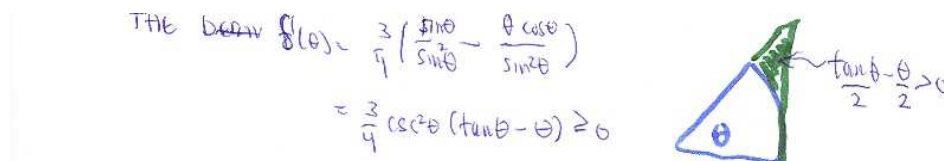 THE f'(θ) = 3/4 ( sinθ/sin²θ - θ cosθ/sin²θ )
= 3/4 csc²θ (tanθ - θ) ≥ 0
tanθ/2 - θ/2 > 0
θ